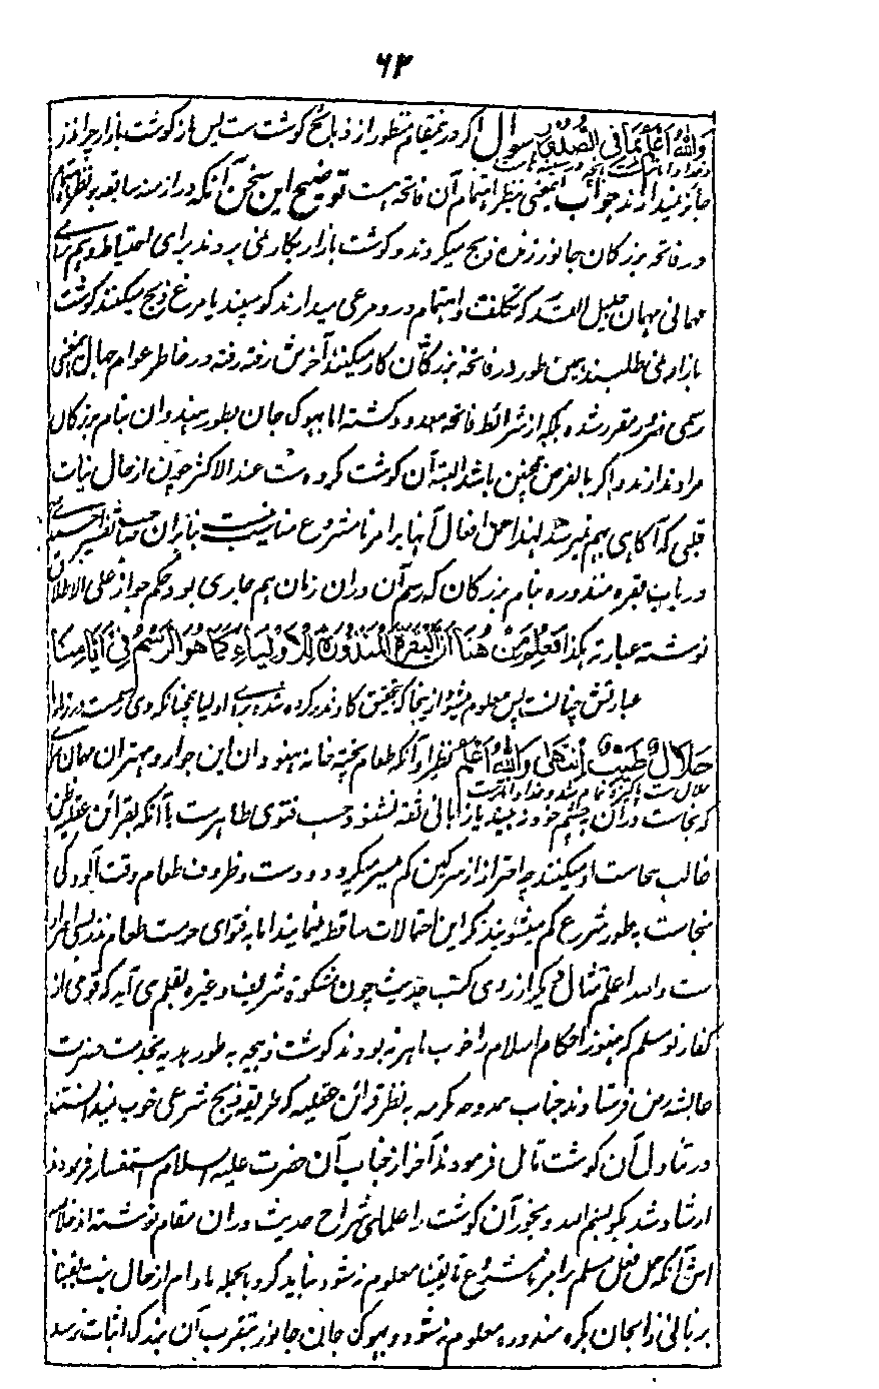 ۶۳
والله اعلم بما فی الصدور سوال اگر درینمقام منظور از ذبائح گوشت ست پس از گوشت بازار چرا نذر
وخدا داناترست بآنچه در سینه هاست
جائز نمیدارند جواب اینمعنی بنظر اهتمام آن فاتحه است توضیح این سخن آنکه در ازمنه سابقه بنظر اهتمام
در فاتحه بزرگان جانور زنده ذبح میکردند و گوشت بازار بکار نمی بردند برای احتیاط و هم برای
مهمانی مهمان جلیل القدر که تکلف و اهتمام درو مرعی میدارند گوسپند یا مرغ ذبح میکنند گوشت
بازار نمی طلبند بهمین طور در فاتحه بزرگان کار میکنند آخرش رفته رفته در خاطر عوام جهال اینمعنی
رسمی ضرور مقرر شده بلکه از شرائط فاتحه معدود گشته اما بهوگ جان بطور هندوان بنام بزرگان
مراد ندارند و اگر بالفرض همچنین باشد البته آن گوشت مکروه است عند الاکثر چون از حال نیات
قلبی که آگاهی بهم نمیرسد لهذا حمل افعال آنها بر امر نامشروع مناسب نیست بنابران صاحب تفسیر احمدی
در باب بقره منذوره بنام بزرگان که رسم آن دران زمان هم جاری بود حکم جواز علی الاطلاق
نوشته عبارته هکذا فعلم من هنا ان البقرة المنذورة للاولیاء کما هو الرسم فی زماننا
عبارتش چنانست پس معلوم میشود ازینجا که بتحقیق گاو نذر کرده شده برای اولیا چنانکه وی رسمست در زمان ما
حلال طیب انتهی والله اعلم نظیر او آنکه طعام پخته خانه هندوان این جوار و مهتران مهمان سرای
حلال ست پاکیزه تمام شد و خدا داناترست
که نجاست دران بچشم خود نه بیند یا از زبانی ثقه نشنود حسب فتوی طاهرست با آنکه بقرائن عقلیه ظن
غالب نجاست او میکنند چه احتراز از سرگین کم میسر میگردد و دست و ظروف طعام وقت آلودگی
نجاست به طور شرع کم میشویند مگر این احتمالات ساقط مینمایند اما به فتوای حرمت طعام نمیرسد
ست والله اعلم مثال دیگر از روی کتب حدیث چون مشکوة شریف و غیره بقلم می آید که قومی از
کفار نو مسلم که هنوز احکام اسلام را خوب ماهر نه بودند گوشت ذبیحه به طور هدیه بخدمت حضرت
عائشه رض فرستادند جناب ممدوحه مکرمه به نظر قرائن عقلیه که طریقه ذبح شرعی خوب نمیدانستند
در تناول آن گوشت تامل فرمودند آخر از جناب آن حضرت علیه السلام استفسار فرمودند
ارشاد شد بگو بسم الله و بخور آن گوشت را علمای شراح حدیث دران مقام نوشته اند خلاصه
اش آنکه حمل فعل مسلم را بر امر نامشروع تا یقینا معلوم نشود نباید کرد بالجمله مادام از حال نیت یقینا
بر زبانی ذابحان بکره منذوره معلوم نه شود و بهوگ جان جانور بتقرب آن بزرگ اثبات نرسد